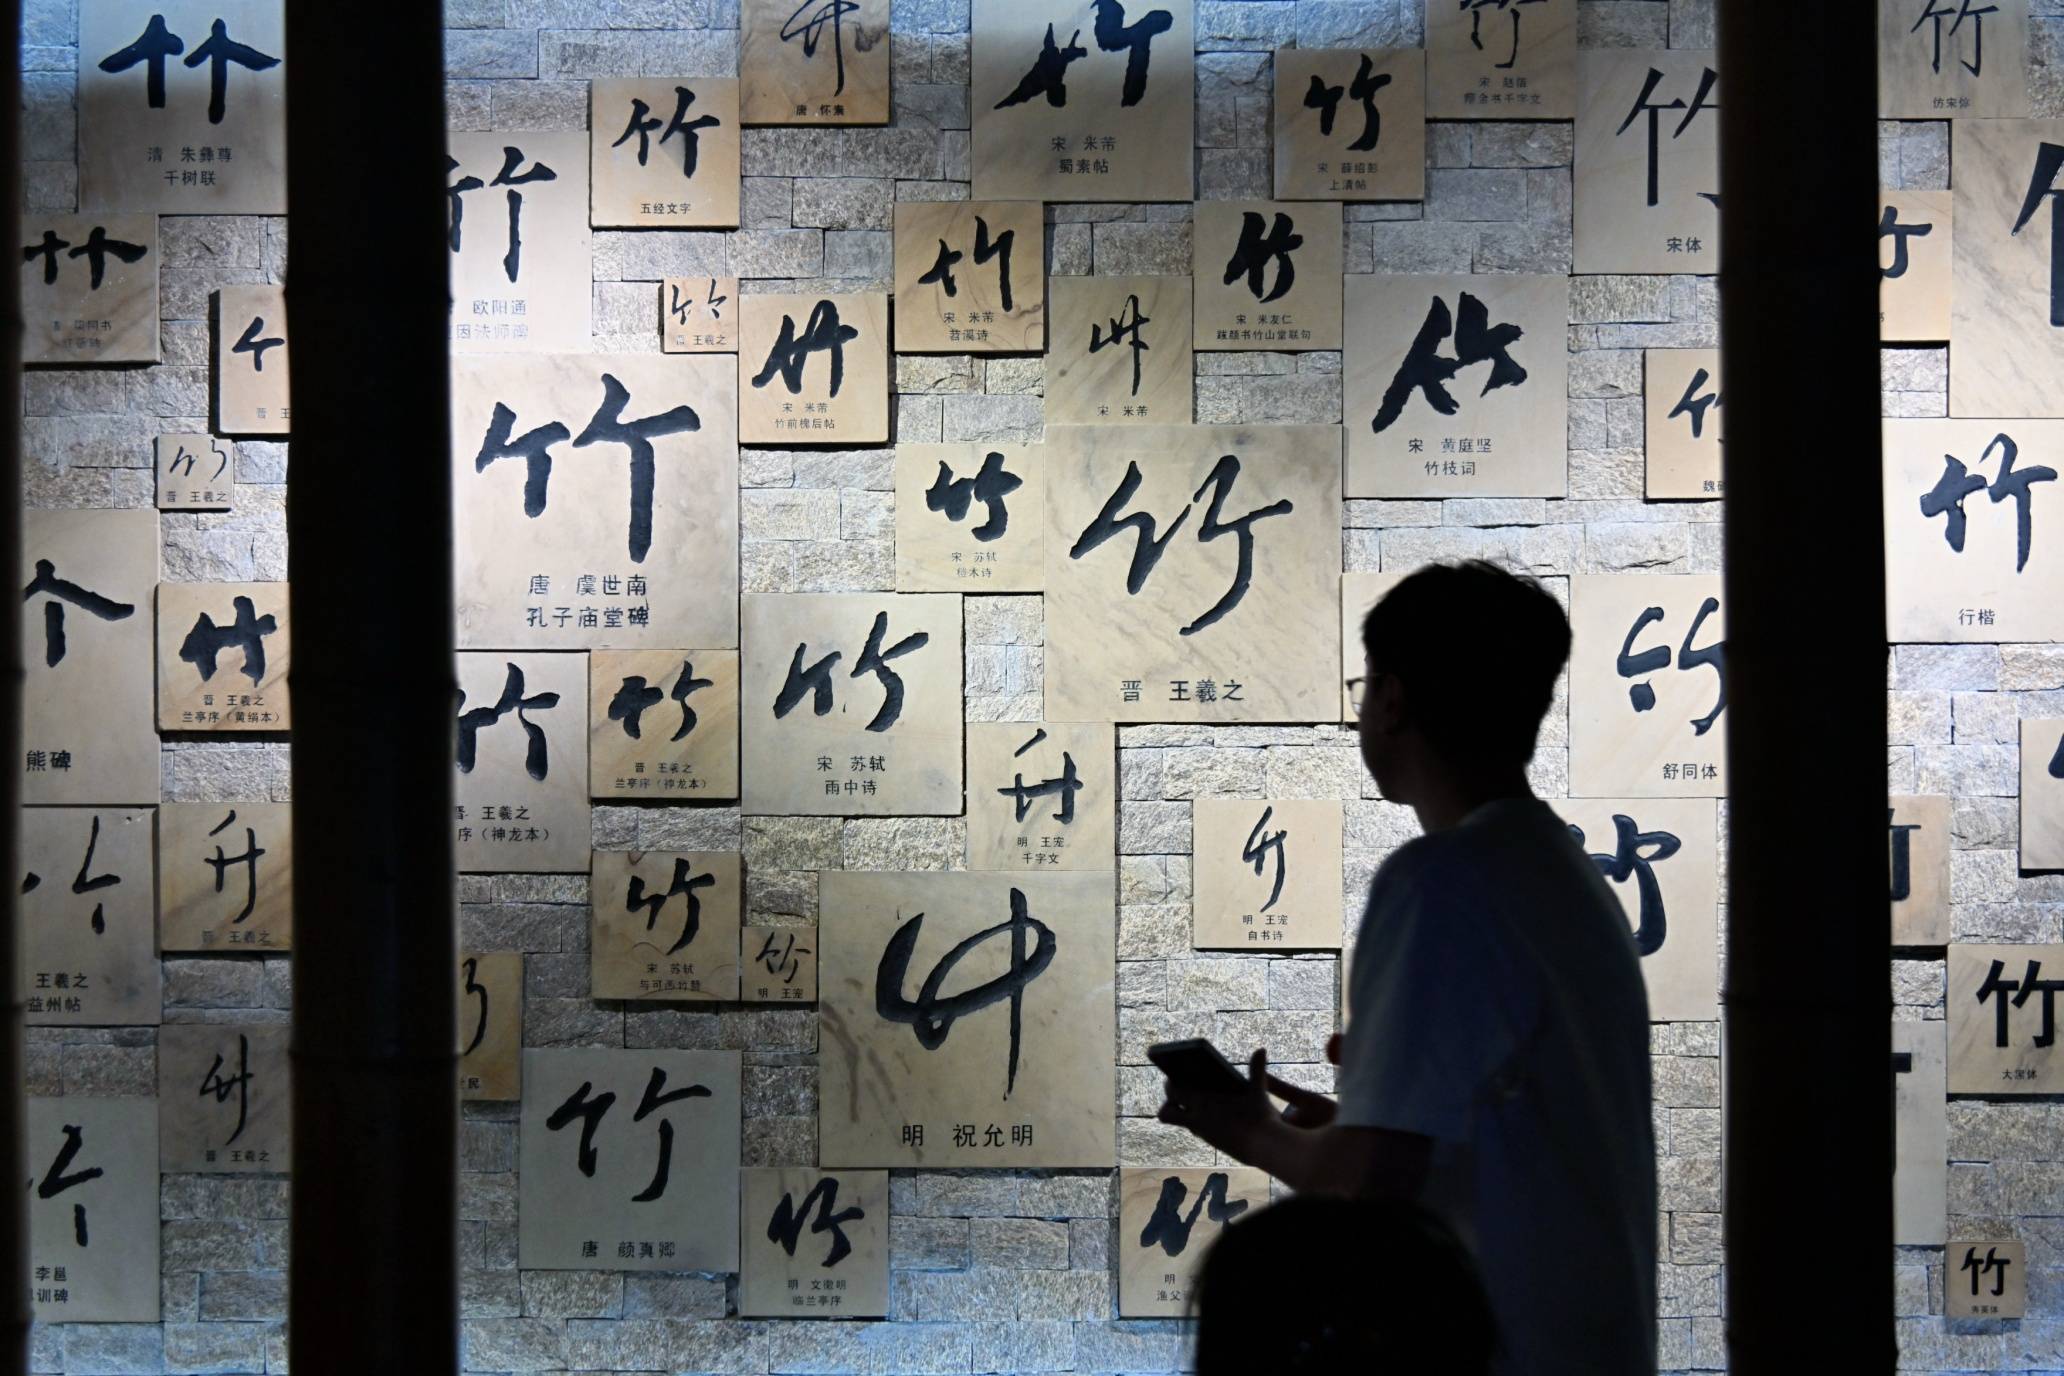 竹
清 朱彝尊
千树联
竹
竹
欧阳通
因法师碑
竹
五经文字
竹
唐 怀素
竹
宋 米芾
蜀素帖
竹
宋 薛绍彭
上清帖
竹
竹
宋体
竹
竹
竹
晋 王羲之
竹
宋 米芾
竹前槐后帖
竹
宋 米芾
苕溪诗
竹
宋 米芾
竹
宋 米友仁
跋颜书竹山堂联句
竹
宋 黄庭坚
竹枝词
竹
晋 王羲之
竹
唐 虞世南
孔子庙堂碑
竹
宋 苏轼
竹
晋 王羲之
竹
行楷
熊碑
竹
晋 王羲之
兰亭序（黄绢本）
竹
晋 王羲之
序（神龙本）
竹
晋 王羲之
兰亭序（神龙本）
竹
宋 苏轼
雨中诗
竹
明 王宠
千字文
竹
舒同体
王羲之
益州帖
竹
晋 王羲之
竹
宋 苏轼
与可画竹赞
竹
明 王宠
竹
明 祝允明
竹
明 王宠
自书诗
竹
竹
竹
晋 王羲之
李邕
训碑
竹
唐 颜真卿
竹
明 文徵明
临兰亭序
竹
明
渔父
竹